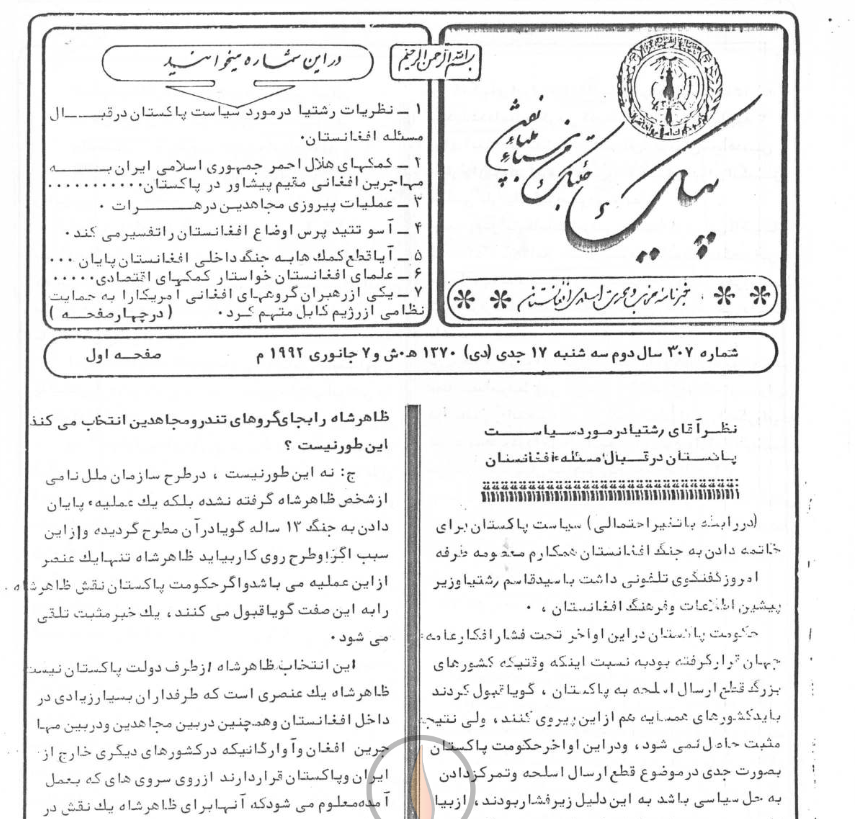 بسم الله الرحمن الرحیم
پیک
خبرنامه حزب وحدت اسلامی افغانستان
در این شماره میخوانید
۱ ــ نظریات رشتیا درمورد سیاست پاکستان درقبــــال
مسئله افغانستان.
۲ ــ کمکهای هلال احمر جمهوری اسلامی ایران بــــه
مهاجرین افغانی مقیم پیشاور در پاکستان...........
۳ ــ عملیات پیروزی مجاهدین درهــــرات .
۴ ــ آسو تتید پرس اوضاع افغانستان راتفسیرمی کند.
۵ ــ آیاقطع کمك هابه جنگ داخلی افغانستان پایان ...
۶ ــ علمای افغانستان خواستار کمکهای اقتصادی.....
۷ ــ یکی ازرهبران گروههای افغانی آمریکارا به حمایت
نظامی ازرژیم کابل متهم کرد. (درچهارصفحــه )
شماره ۳۰۷ سال دوم سه شنبه ۱۷ جدی (دی) ۱۳۷۰ ه.ش و۷ جانوری ۱۹۹۲ م
صفحــه اول
نظرآقای رشتیادرموردسیاســـت
پاکستان درقبال مسئله افغانستان
(دررابطه باتغیراحتمالی) سیاست پاکستان برای
خاتمه دادن به جنگ افغانستان همکارم معصومه طرفه
امروزگفتگوی تلفونی داشت باسیدقاسم رشتیاوزیر
پیشین اطلاعات وفرهنگ افغانستان ، .
حکومت پاکستان دراین اواخر تحت فشارافکارعامه
جهان قرارگرفته بودبه نسبت اینکه وقتیکه کشورهای
بزرگ قطع ارسال اسلحه به پاکستان ، گویاقبول کردند
بایدکشورهای همسایه هم ازاین پیروی کنند، ولی نتیجه
مثبت حاصل نمی شود، ودراین اواخرحکومت پاکستان
بصورت جدی درموضوع قطع ارسال اسلحه وتمرکزدادن
به حل سیاسی باشد به این دلیل زیرفشاربودند، ازبیا
ظاهرشاه رابجای گروهای تندرومجاهدین انتخاب می کند
این طورنیست ؟
ج: نه این طورنیست ، درطرح سازمان ملل نامی
ازشخص ظاهرشاه گرفته نشده بلکه یك عملیه ء پایان
دادن به جنگ ۱۳ ساله گویادرآن مطرح گردیده وازاین
سبب اگراوطرح روی کاربیاید ظاهرشاه تنهایك عنصر
ازاین عملیه می باشدواگرحکومت پاکستان نقش ظاهرشاه
رابه این صفت گویاقبول می کنند، یك خبرمثبت تلقی
می شود.
این انتخاب ظاهرشاه ازطرف دولت پاکستان نیست
ظاهرشاه یك عنصری است که طرفداران بسیارزیادی در
داخل افغانستان وهمچنین دربین مجاهدین ودربین مها
جرین افغان وآوارگانیکه درکشورهای دیگری خارج از
ایران وپاکستان قراردارند ازروی سروی های که بعمل
آمده معلوم می شودکه آنهابرای ظاهرشاه یك نقش در